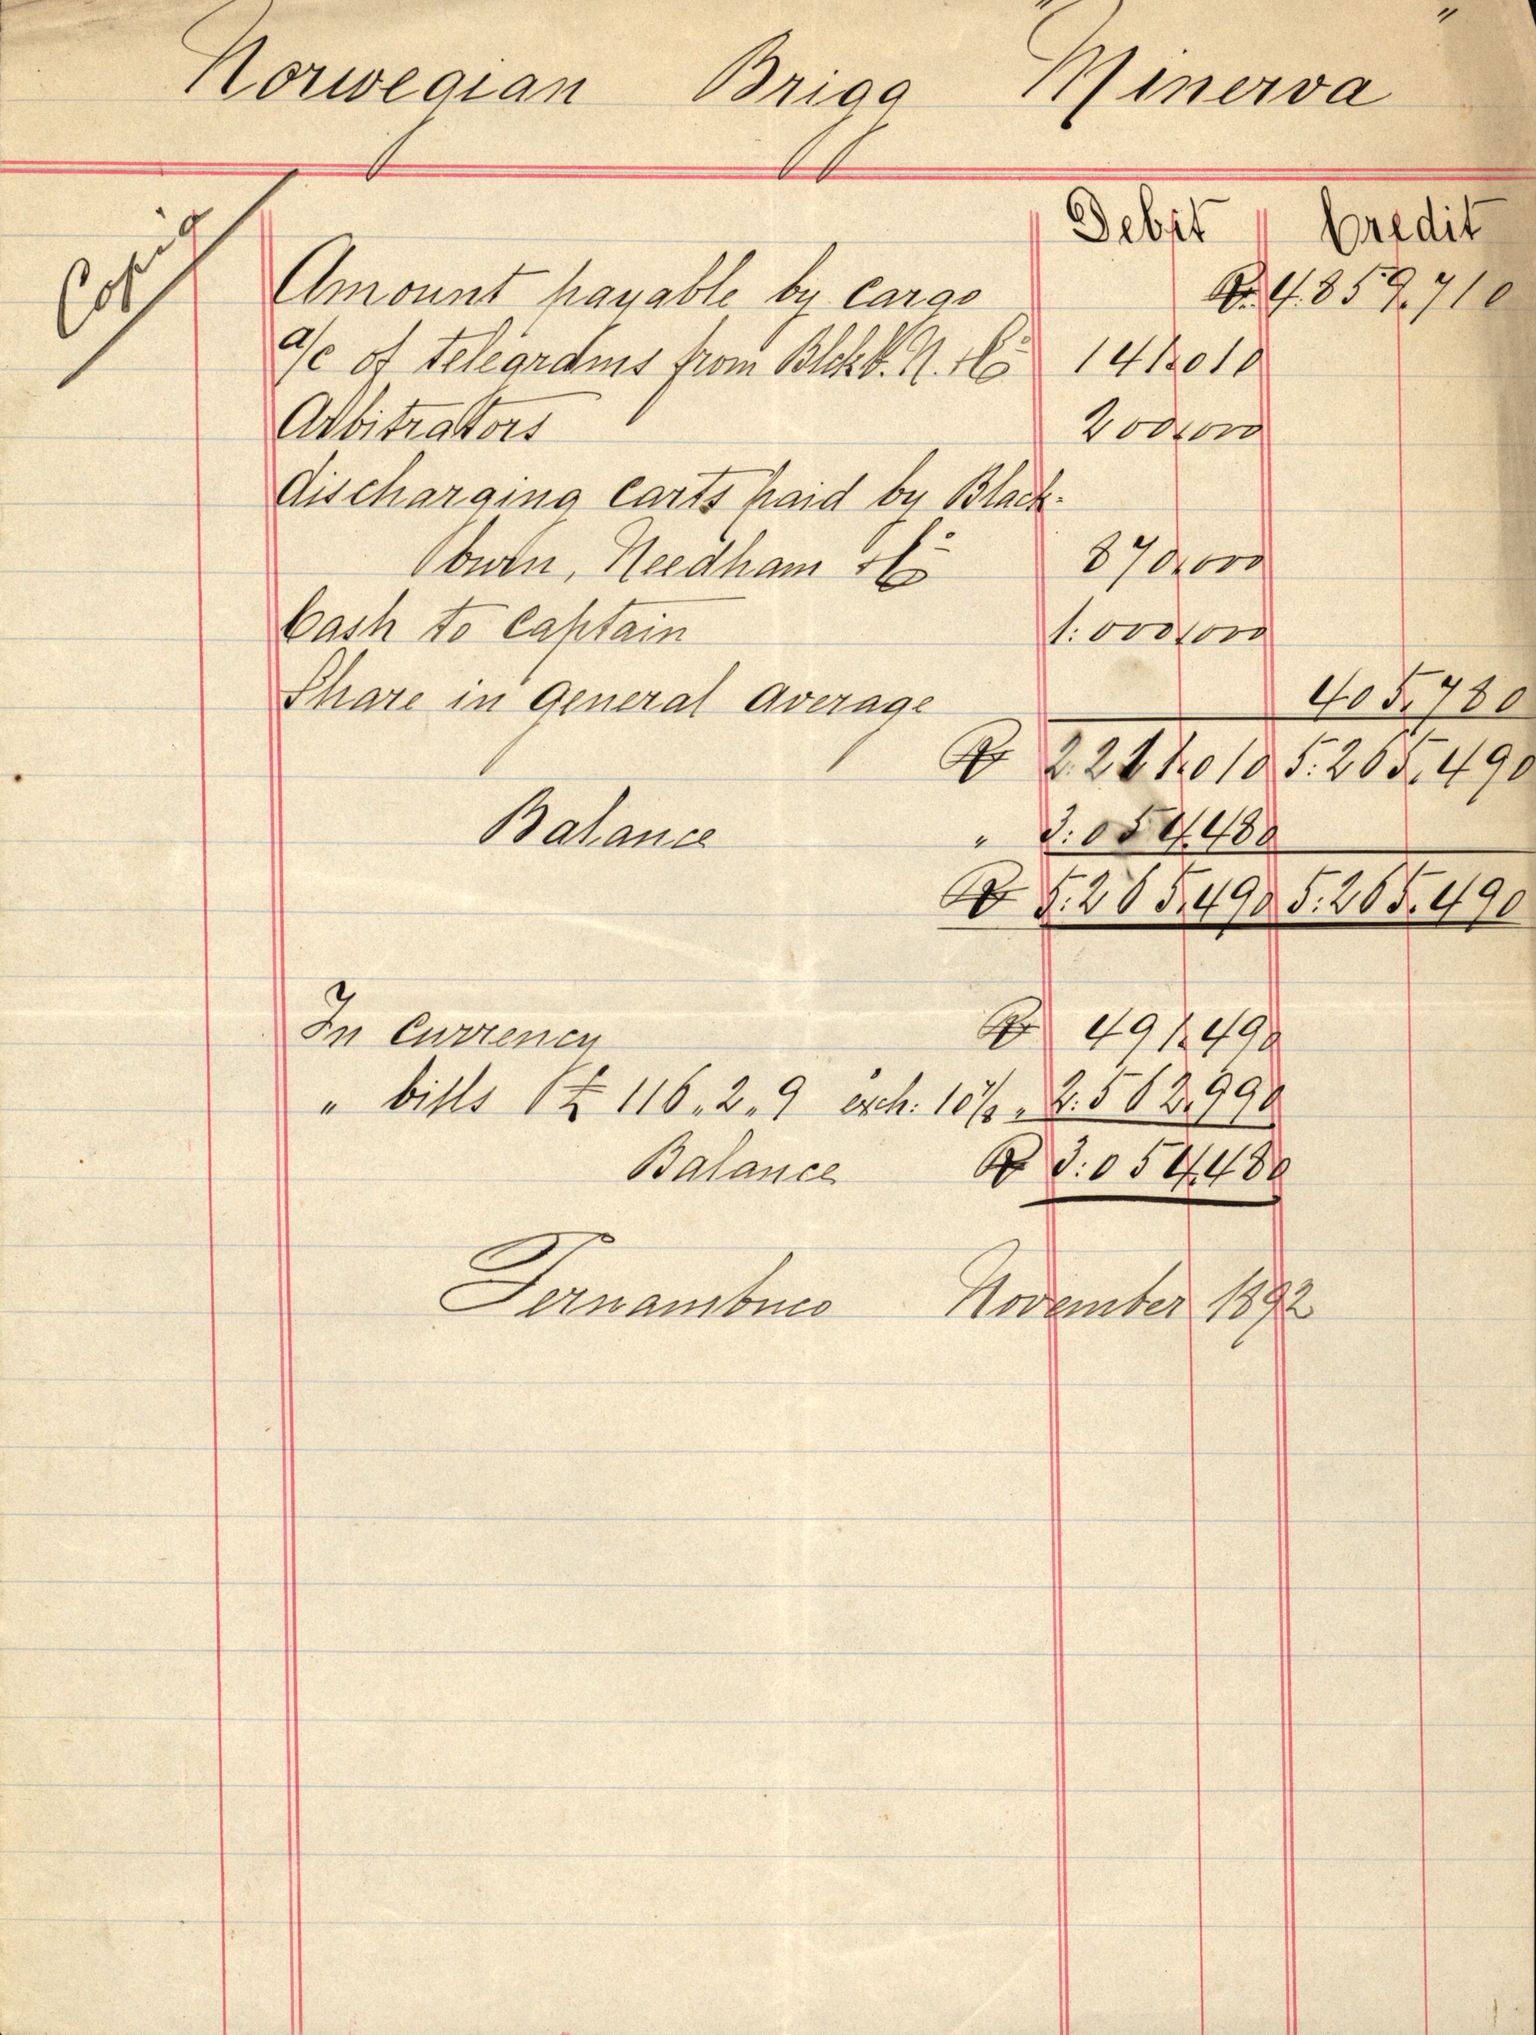 Norwegian Brigg "Minerva"
Copy
Debit Credit
Amount payable by cargo Rs. 4.859,710
a/c of telegrams from Blckb. N. & Co 141.010
Arbitrators 200,000
discharging carts paid by Black-
burn, Needham & Co 870,000
Cash to Captain 1:000,000
Share in general average 405,780
Rs 2.211.010 5:265,490
Balance " 3:054,480
Rs 5:265,490 5:265,490
In currency Rs 491,490
" bills £ 116.2.9 exch: 10 7/8 " 2:562,990
Balance Rs 3:054,480
Pernambuco November 1892